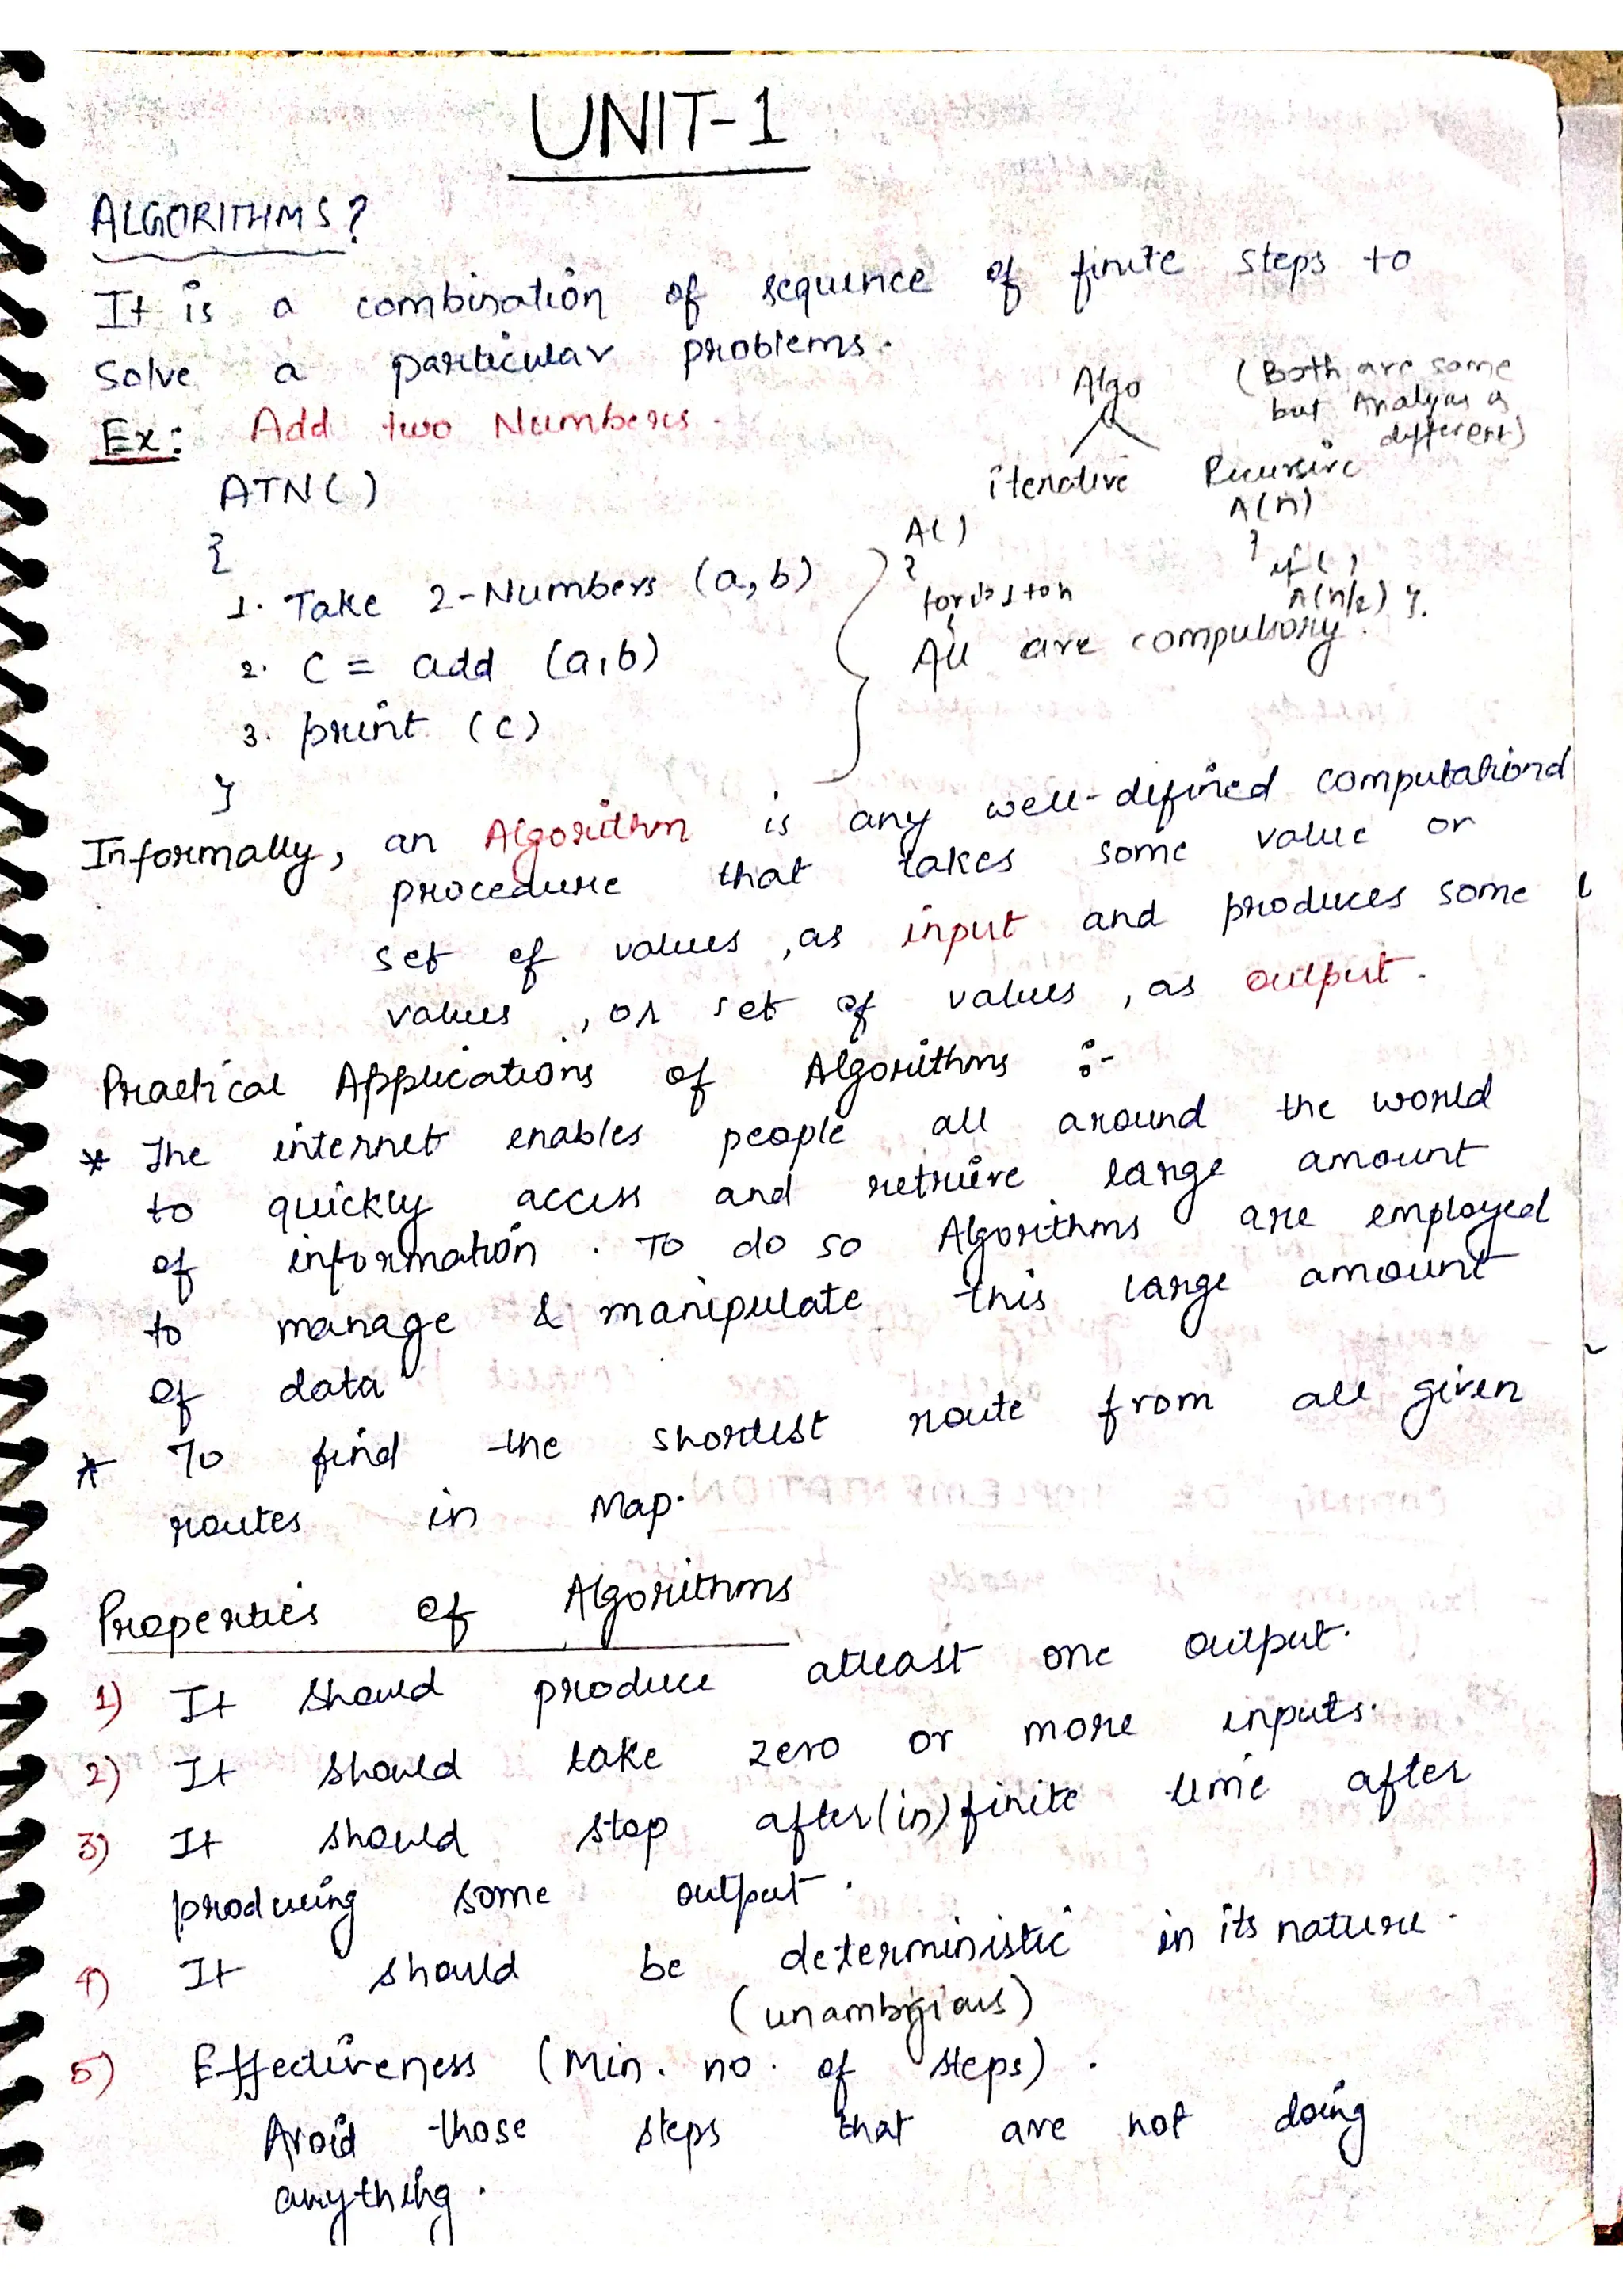 UNIT-1
ALGORITHMS?
It is a combination of sequence of finite steps to
solve a particular problems.
Ex: Add two Numbers.
Algo
(Both are same
but Analysis is
different)
iterative Recursive
ATN()
{
1. Take 2-Numbers (a,b)
2. C = add (a,b)
3. print (c)
}
A()
{
for i=1 to n
A(n)
{
if ( )
A(n/2) }.
All are compulsory.
Informally, an Algorithm is any well-defined computational
procedure that takes some value or
set of values, as input and produces some
values, or set of values, as output.
Practical Applications of Algorithms :-
* The internet enables people all around the world
to quickly access and retrieve large amount
of information. To do so Algorithms are employed
to manage & manipulate this large amount
of data
* To find the shortest route from all given
routes in Map.
Properties of Algorithms
1) It should produce atleast one output.
2) It should take zero or more inputs.
3) It should stop after(in)finite time after
producing some output.
4) It should be deterministic in its nature.
(unambigious)
5) Effectiveness (Min. no. of steps).
Avoid those steps that are not doing
anything.